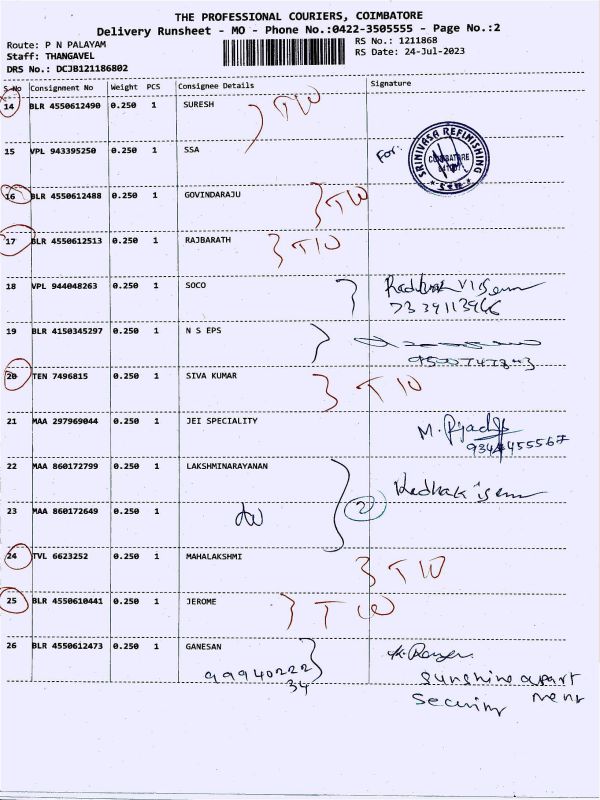 THE PROFESSIONAL COURIERS, COIMBATORE
Delivery Runsheet - MO - Phone No.:0422-3505555 - Page No.:2
Route: P N PALAYAM RS No.: 1211868
Staff: THANGAVEL RS Date: 24-Jul-2023
DRS No.: DCJB121186802
S.No Consignment No Weight PCS Consignee Details Signature
14 BLR 4550612490 0.250 1 SURESH TIO
15 VPL 943395250 0.250 1 SSA For: SRINIVASA REFINISHING COIMBATORE
16 BLR 4550612488 0.250 1 GOVINDARAJU TIO
17 BLR 4550612513 0.250 1 RAJBARATH TIO
18 VPL 944048263 0.250 1 SOCO
7339113966
19 BLR 4150345297 0.250 1 N S EPS
20 TEN 7496815 0.250 1 SIVA KUMAR TIO
21 MAA 297969044 0.250 1 JEI SPECIALITY
22 MAA 860172799 0.250 1 LAKSHMINARAYANAN
2
23 MAA 860172649 0.250 1
24 TVL 6623252 0.250 1 MAHALAKSHMI TIO
25 BLR 4550610441 0.250 1 JEROME TIO
26 BLR 4550612473 0.250 1 GANESAN
99940222
34
sunshine apart
ment
Security